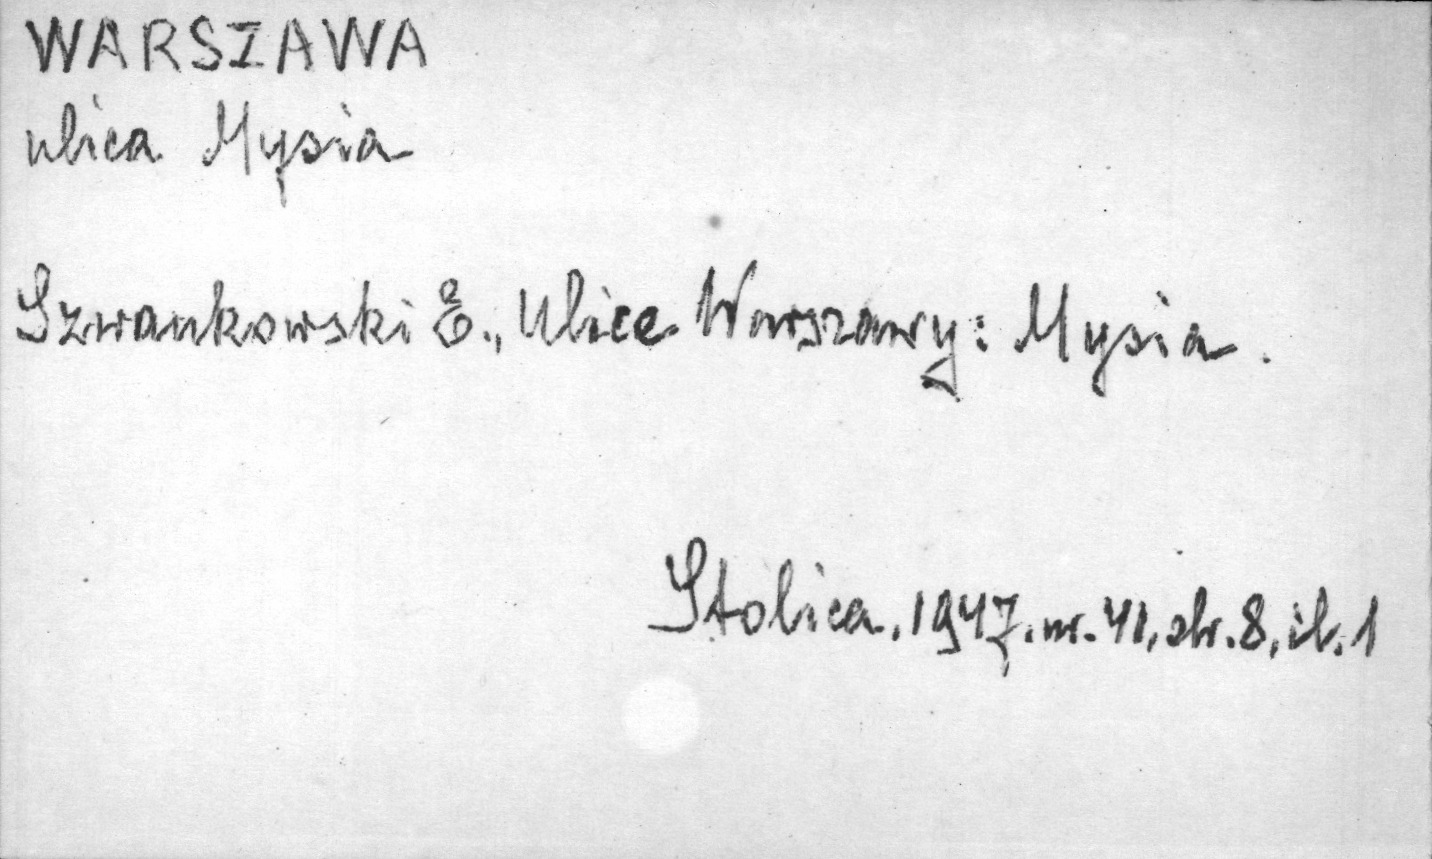 WARSZAWA
ulica Mysia
Szwankowski E., Ulice Warszawy: Mysia.
Stolica, 1947. nr. 41, str. 8, il. 1